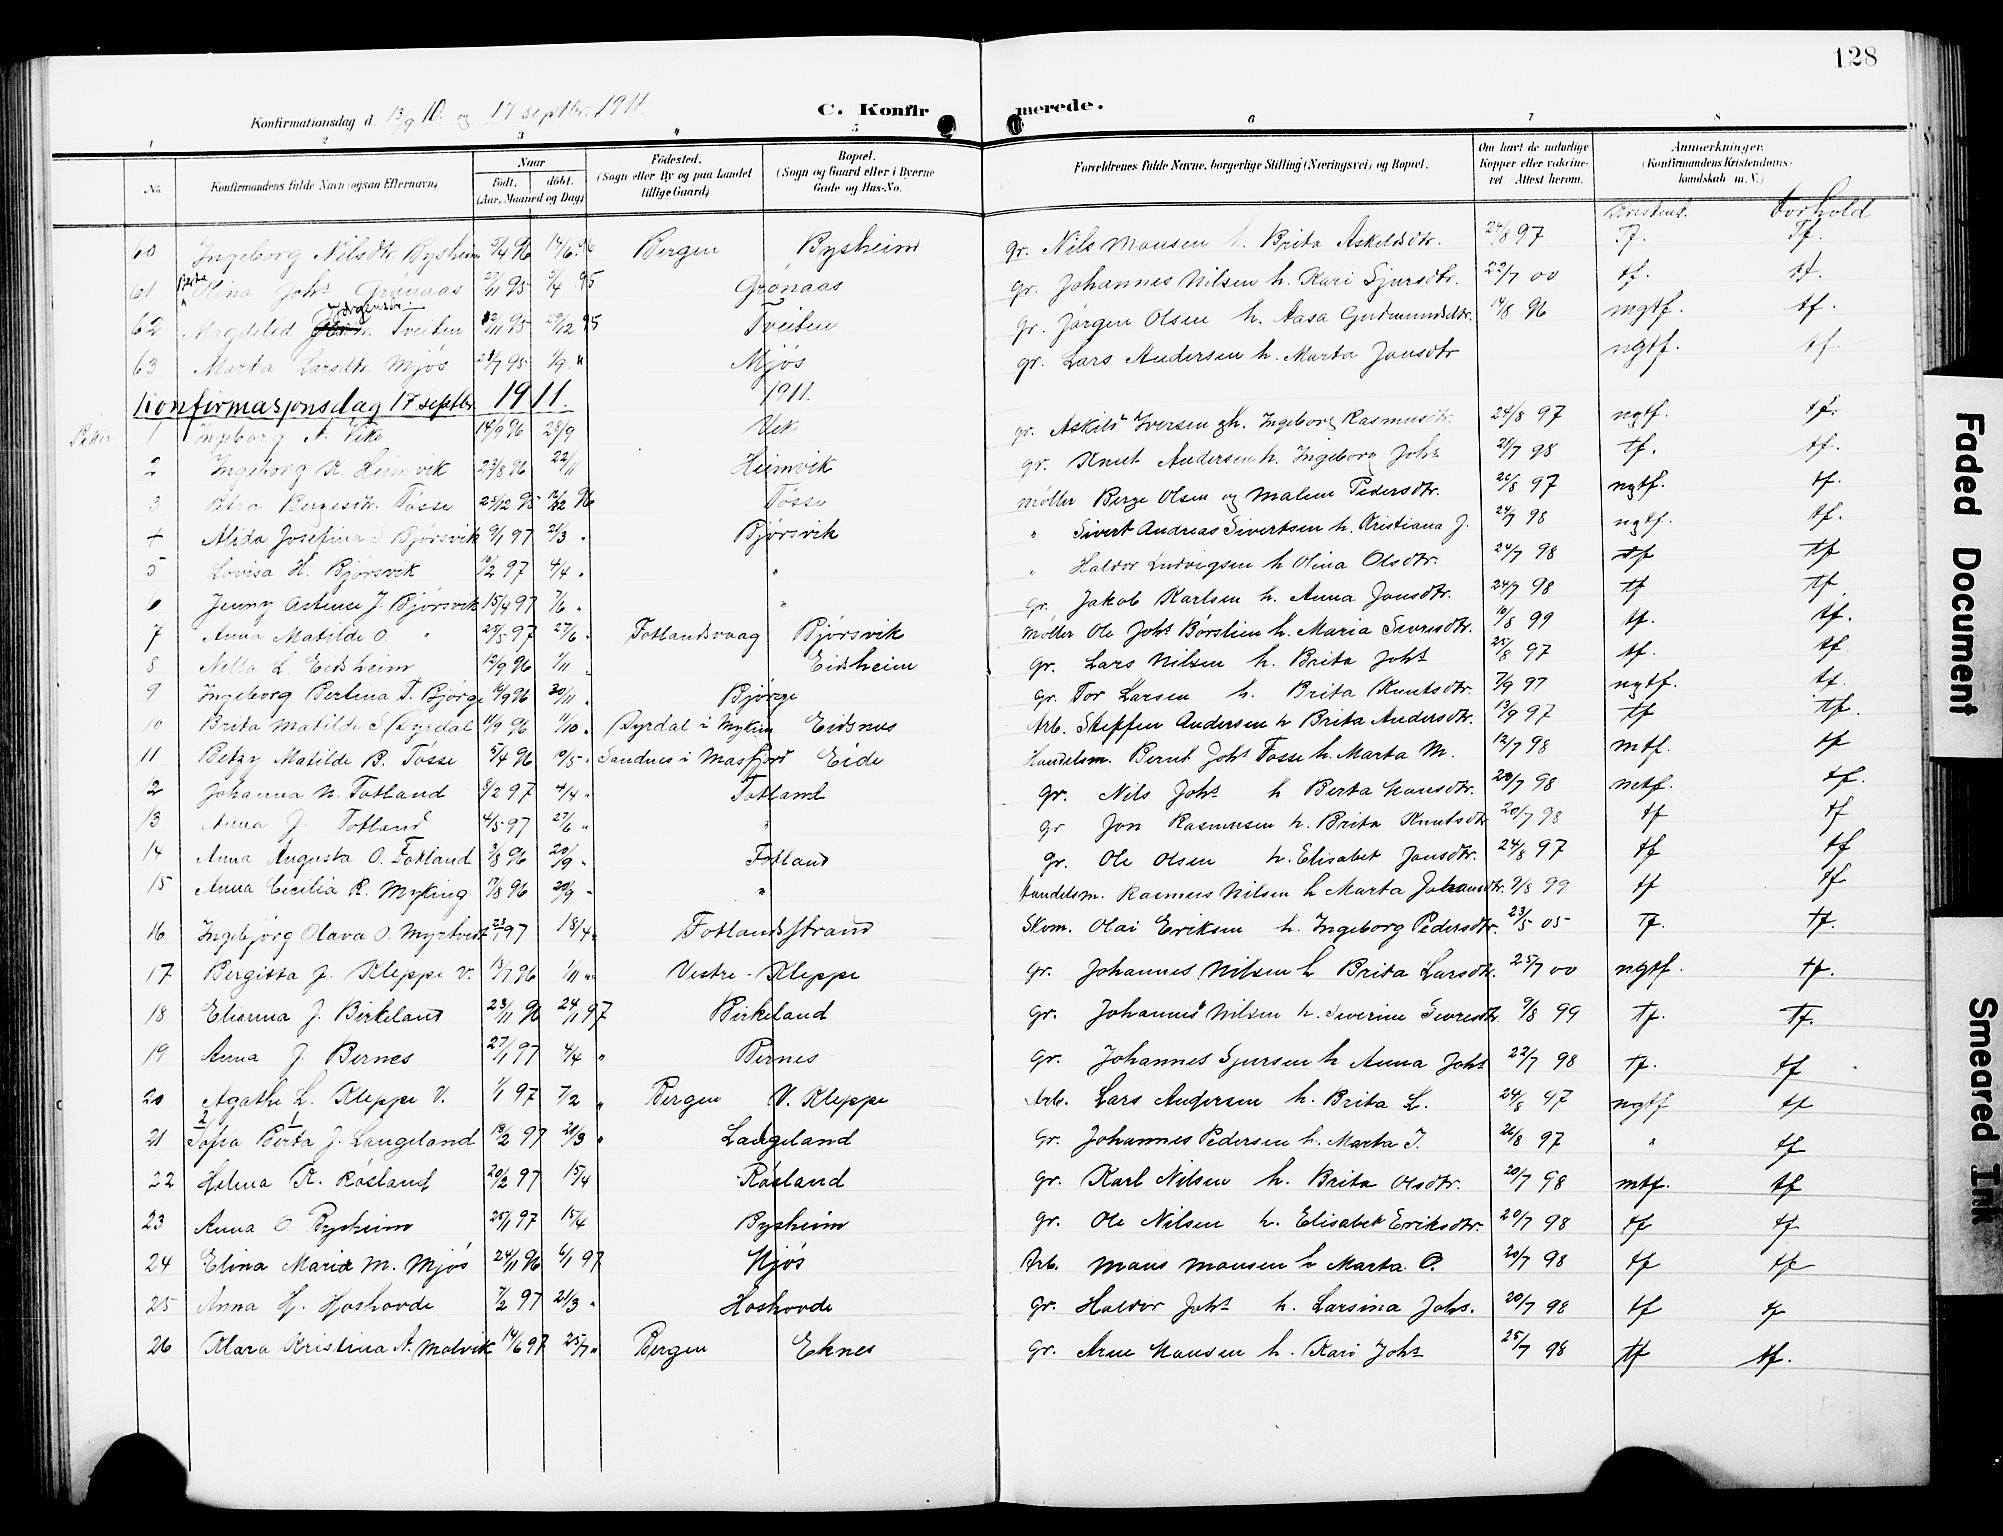 128
Konfirmationsdag d. 13/9 10. og 17 septbr. 1911.
C. Konfirmerede.
1 2 3 4 5 6 7 8
No. Konfirmandens fulde Navn (ogsaa Efternavn) Naar født. døbt. (Aar, Maaned og Dag) Fødested. (Sogn eller By og paa Landet tillige Gaard) Bopæl. (Sogn og Gaard eller i Byerne Gade og Hus-No. Forældrenes fulde Navne, borgerlige Stilling (Næringsvei) og Bopæl. Om havt de naturlige Kopper eller vaccineret Attest herom. Anmerkninger. (Konfirmandens Kristendomskundskab m. V.)
Kristend. Forhold
60 Ingeborg Nilsdtr. Bysheim 5/4 96 14/6 96 Bergen Bysheim gr. Nils Monsen h. Brita Askildsdtr. 24/8 97 Tf. Tf.
61 Olina Johs Grønaas 27/11 95 95 Grønaas gr. Johannes Nilsen h. Kari Sjursdtr. 22/7 00 tf. tf.
62 Magdelid Jørgensdtr. Tveiten 29/12 95 Tveiten gr. Jørgen Olsen h. Aasa Gudmundsdtr. 14/8 96 mgtf. tf.
63 Marta Larsdtr. Mjøs 21/7 95 1/9 " Mjøs gr. Lars Andersen h. Marta Jonsdtr ngtf. tf.
Konfirmasjonsdag 17 septbr. 1911. 1911.
1 Ingeborg A. Vike 14/9 96 28/9 Vik gr. Askild Iversen h. Ingeborg Rasmusdtr. 24/8 97 ngtf. tf.
2 Ingeborg K. Heimvik 23/8 96 22/11 Heimvik gr. Knut Andersen h. Ingeborg Johs 21/7 98 tf. tf.
3 Petra Bergesdtr. Tosse 25/12 95 96 Tosse Møller Berge Olsen og Malene Pedersdtr. 26/8 97 ngtf. tf.
4 Alida Josefina S Bjørsvik 9/1 97 21/3 " Bjørsvik " Sivert Andreas Sivertsen h. Kristiana J. 24/7 98 ngtf. tf.
5 Lovisa H. Bjørsvik 97 4/4 " " " Haldor Ludvigsen h Olina Olsdtr. 24/7 98 tf tf
6 Jenny Astense J. Bjørsvik 15/4 97 7/6 " " Gr. Jakob Karlsen h. Anna Jonsdtr. 24/7 98 tf tf.
7 Anna Matilde O. " 25/5 97 27/6 " Fotlandsvaag Bjørsvik Møller Ole Johs Børslien h. Maria Siversdtr. 10/8 99 tf. tf.
8 Netta L. Eidsheim 12/9 96 1/11 " Eidsheim gr. Lars Nilsen h. Brita Johs 25/8 97 tf. tf.
9 Ingeborg Bertina T. Bjørge 96 30/11 " Bjørge gr. Tor Larsen h. Brita Knutsdtr. 7/9 97 ngtf. tf.
10 Brita Matilde S Dyrdal 11/9 96 11/10 " Dyrdal i Mykin Eidsnes Arb. Steffen Andersen h Brita Andersdtr. 13/9 97 tf tf.
11 Betzy Matilde B. Tosse 5/4 96 10/5 " Sandnes i Masfjord Eide Handelsm. Bernt Johs Tosse h. Marta M. 12/7 98 mtf. tf
2 Johanna N. Fotland 8/2 97 4/4 " Fotland gr. Nils Johs h Berta Monsdtr. 20/7 98 mtf. tf.
13 Anna J. Fotland 4/5 97 27/6 " " gr Jon Rasmusen h. Brita Knutsdtr 20/7 98 tf tf
14 Anna Augusta O. Fotland 3/8 96 20/9 " Fotland gr. Ole Olsen h. Elisabet Jonsdtr. 24/8 97 tf tf
15 Anna Cecilia R. Myking 17/8 96 20/9 " " Handelsm. Rasmus Nilsen h Marta Johansdtr. 9/8 99 tf tf
16 Ingebjørg Olava O. Myrtvedt 23/1 97 18/4 " Fotlandsstrand Skom. Olai Eriksen h. Ingeborg Pedersdtr. 23/5 05 Tf. tf.
17 Bergitta J. Kleppe V. 13/7 96 1/11 " Vestre - Kleppe gr. Johannes Nilsen h Brita Larsdtr. 25/7 00 ngtf. tf.
18 Elianna J. Birkeland 23/11 96 24/1 97 Birkeland gr. Johannes Nilsen h. Severine Sivresdtr 9/8 99 tf. Tf.
19 Anna J. Bernes 27/1 97 4/4 " Bernes gr. Johannes Sjursen h Anna Johs 22/7 98 tf. tf
20 Agathe L. Kleppe V. 1/1 97 7/2 " Bergen V. Kleppe Arb. Lars Andersen h. Brita L. 24/8 97 ngtf tf
21 Sofia Berta J. Langeland 97 21/3 " Langeland Gr. Johannes Pedersen h. Marta I. 26/8 97 " tf
22 Helena K. Røsland 20/2 97 15/4 Røsland gr. Karl Nilsen h. Brita Olsdtr. 20/7 98 mtf. tf
23 Anna O Bysheim 25/1 97 15/4 Bysheim gr. Ole Nilsen h. Elisabet Eriksdtr. 20/7 98 tf tf
24 Elina Maria M. Mjøs 24/11 96 6/1 97 Mjøs Arb. Mons Monsen h Marta O. 20/7 98 tf tf
25 Anna H. Hoshovde 7/2 97 21/3 " Hoshovde gr. Haldor Johs h. Larsina Johs. 20/7 98 tf tf
26 Klara Kristina A. Molvik 14/6 97 25/7 " Bergen Eknes gr. Arne Hansen h. Kari Johs 25/7 98 tf tf.
Faded Document
Smeared Ink